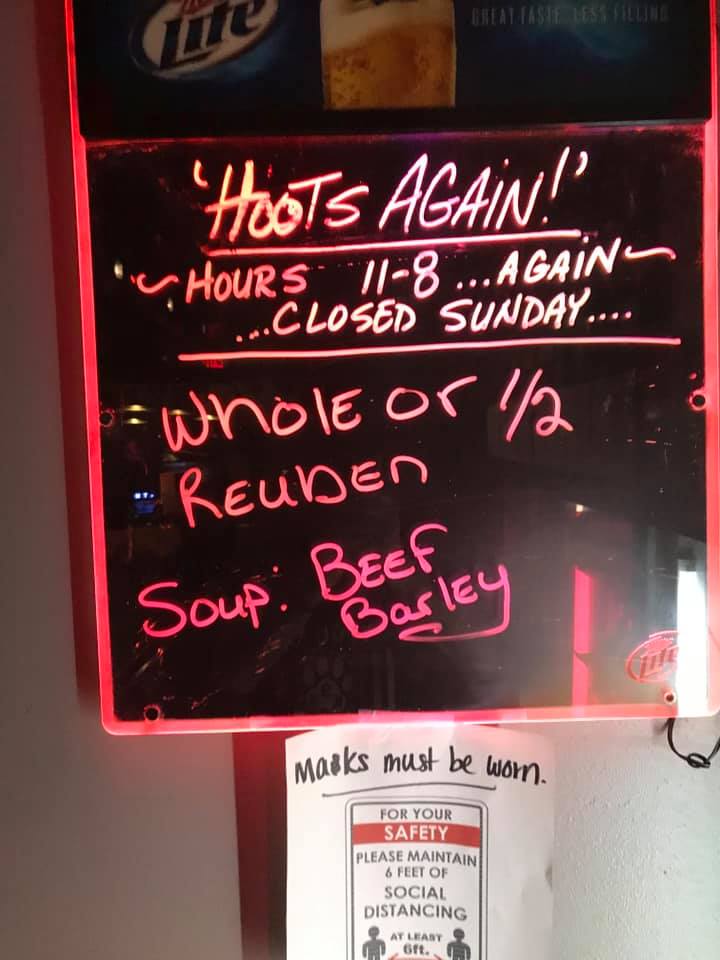 Lite
GREAT TASTE LESS FILLING
'HOOTS AGAIN!'
~HOURS 11-8...AGAIN~
...CLOSED SUNDAY....
WHOLE or 1/2
REUBEN
Soup: BEEF
Barley
Lite
Masks must be worn.
FOR YOUR
SAFETY
PLEASE MAINTAIN
6 FEET OF
SOCIAL
DISTANCING
AT LEAST
6ft.